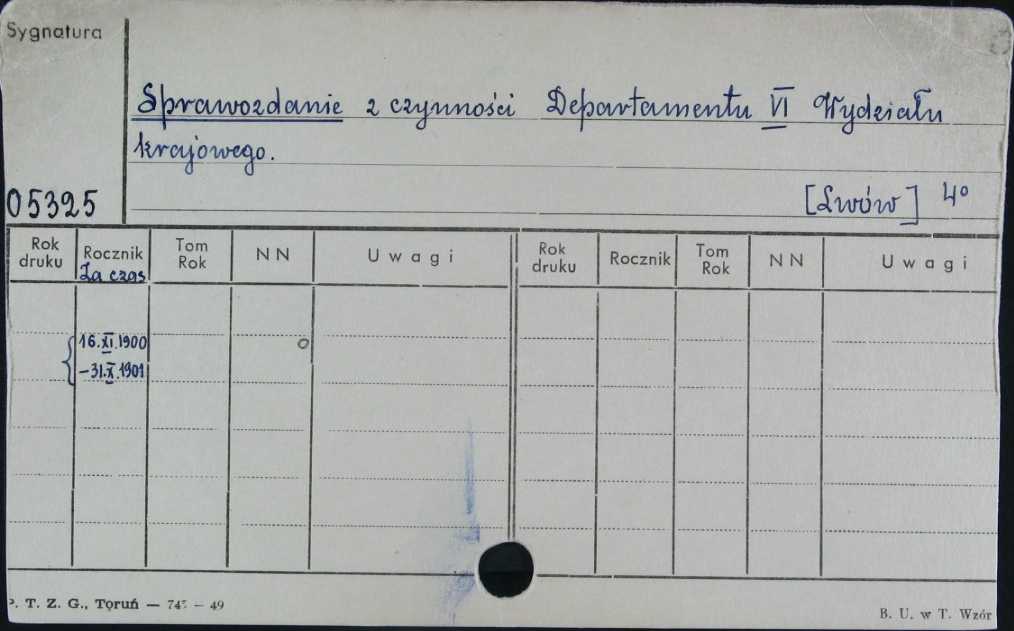 Sygnatura
Sprawozdanie z czynności Departamentu VI Wydziału
krajowego.
05325
[Lwów] 4°
Rok druku Rocznik Tom Rok N N Uwagi Rok druku Rocznik Tom Rok N N Uwagi
Za czas
16.XI.1900
-31.X.1901
P. T. Z. G., Toruń — 745 — 49
B. U. w T. Wzór